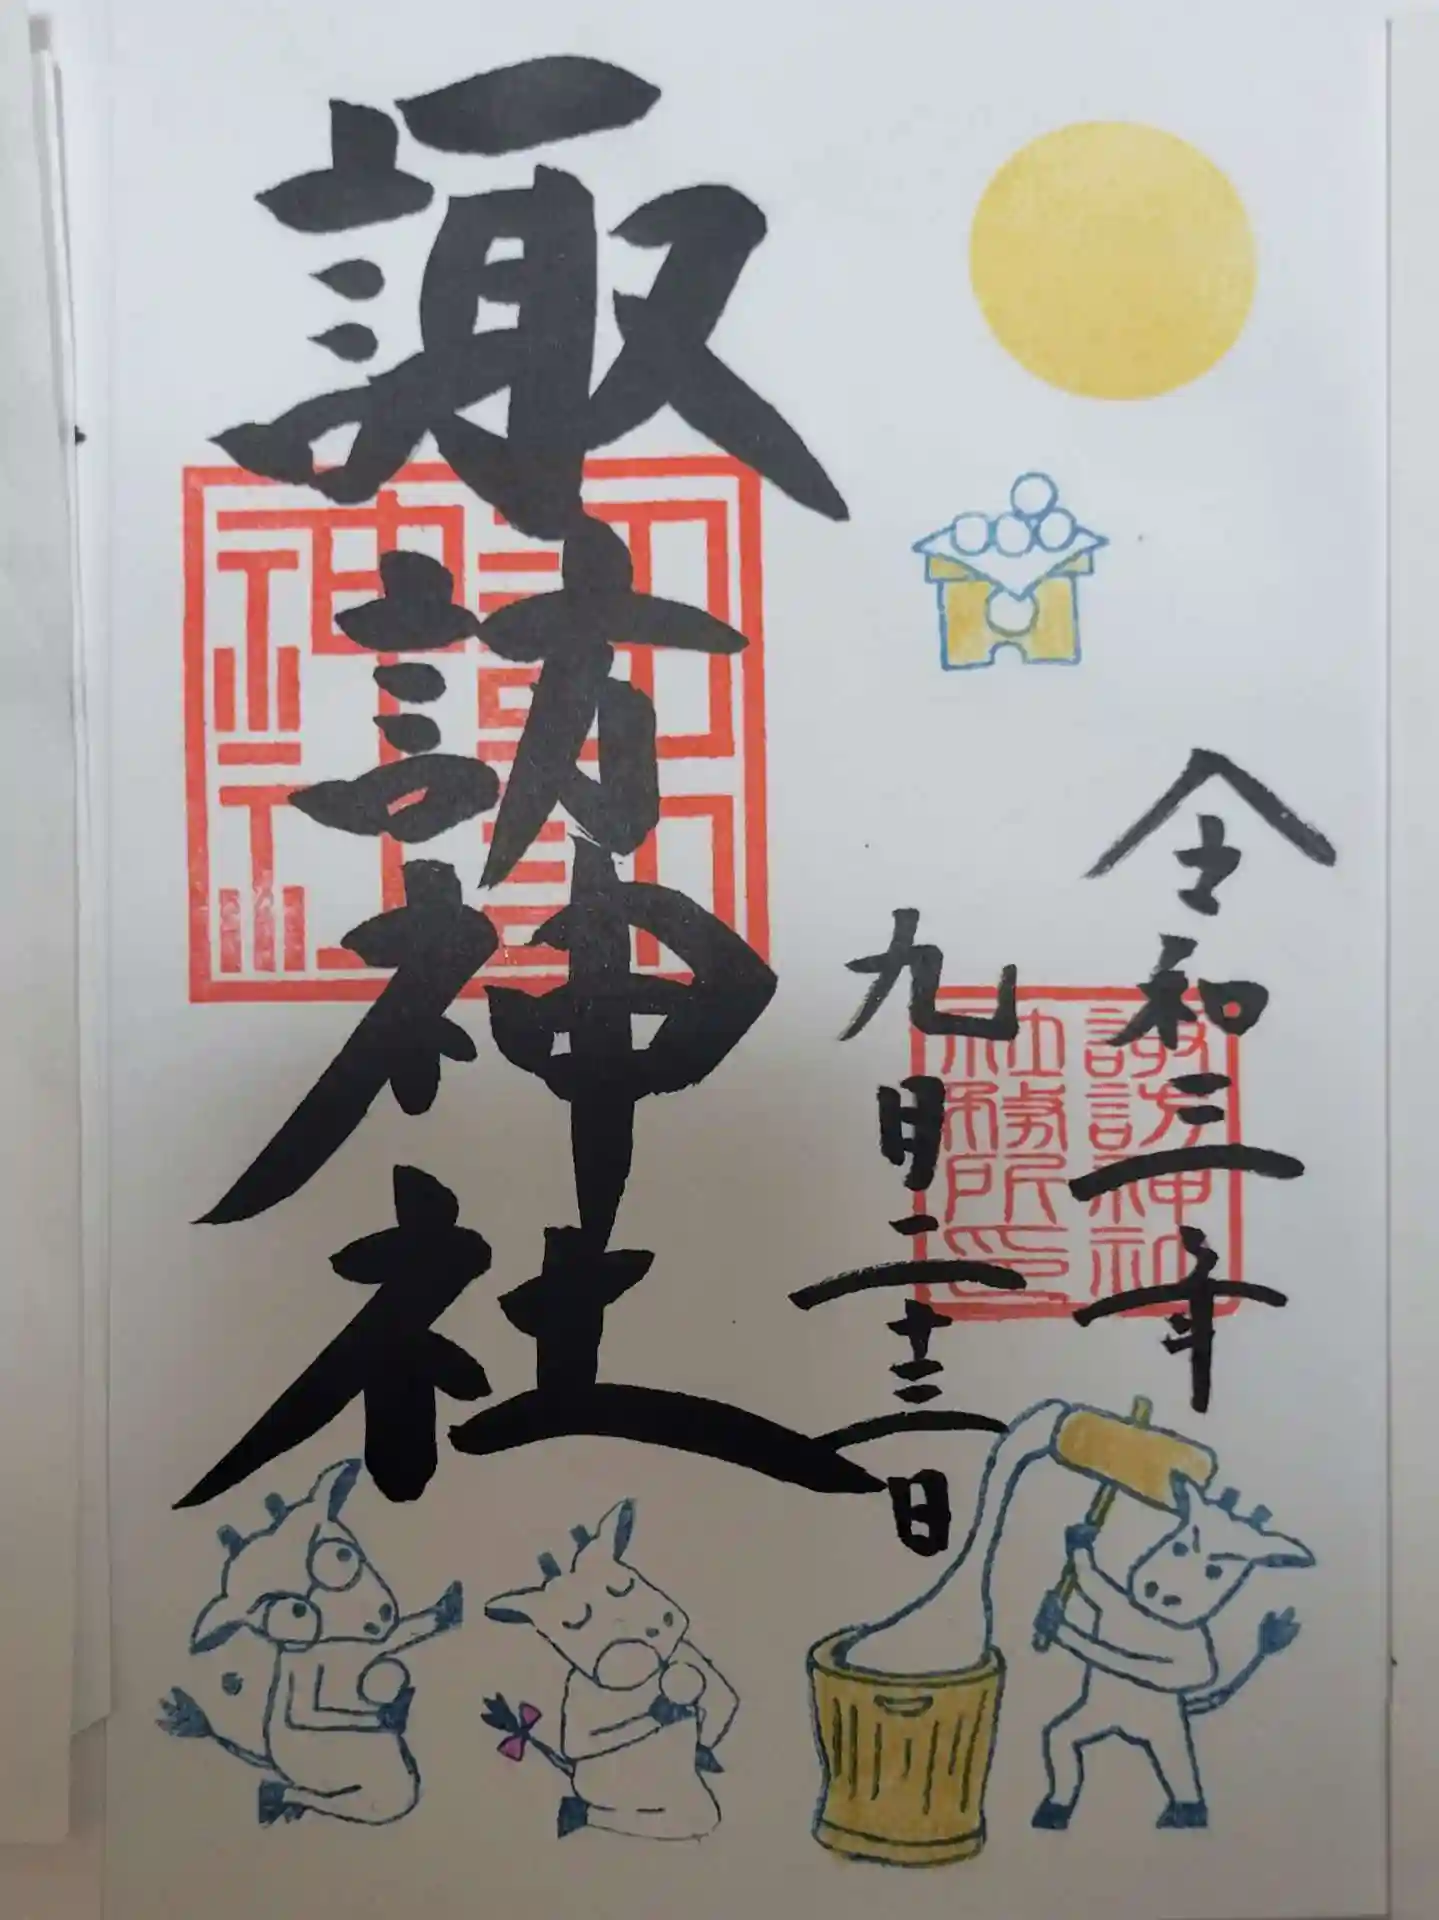 令和三年
九月二十三日
諏訪神社
諏訪神社
社務所印
諏訪
神社